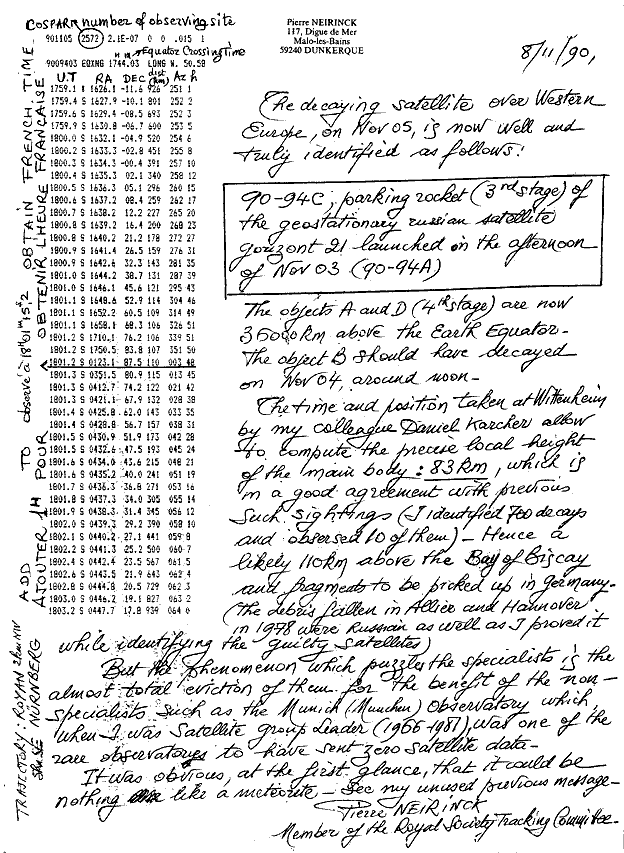 COSPAR number of observing site
901105 2572 2.1E-07 0 0 .015 1
Equator Crossing Time
9009403 EQXNG 1744.03 LONG W. 50.58
U.T RA DEC dist (km) Az h
1759.1 S 1626.1 -11.6 926 251 1
1759.4 S 1627.9 -10.1 801 252 2
1759.6 S 1629.4 -08.5 693 252 3
1759.9 S 1630.8 -06.7 600 253 5
1800.0 S 1632.1 -04.9 520 254 6
1800.2 S 1633.3 -02.8 451 255 8
1800.3 S 1634.3 -00.4 391 257 10
1800.4 S 1635.3 02.1 340 258 12
1800.5 S 1636.3 05.1 296 260 15
1800.6 S 1637.2 08.4 259 262 17
1800.7 S 1638.2 12.2 227 265 20
1800.8 S 1639.2 16.4 200 268 23
1800.8 S 1640.2 21.2 178 272 27
1800.9 S 1641.4 26.5 159 276 31
1800.9 S 1642.6 32.3 143 281 35
1801.0 S 1644.2 38.7 131 287 39
1801.0 S 1646.1 45.6 121 295 43
1801.1 S 1648.6 52.9 114 304 46
1801.1 S 1652.2 60.5 109 314 49
1801.1 S 1658.1 68.3 106 326 51
1801.2 S 1710.1 76.2 106 339 51
1801.2 S 1750.5 83.8 107 351 50
1801.2 S 0123.1 87.5 110 003 48
1801.3 S 0351.5 80.9 115 013 45
1801.3 S 0412.7 74.2 122 021 42
1801.3 S 0421.1 67.9 132 028 38
1801.4 S 0425.8 62.0 143 033 35
1801.4 S 0428.8 56.7 157 038 31
1801.5 S 0430.9 51.9 173 042 28
1801.5 S 0432.6 47.5 193 045 24
1801.6 S 0434.0 43.6 215 048 21
1801.6 S 0435.2 40.0 241 051 19
1801.7 S 0436.3 36.8 271 053 16
1801.8 S 0437.3 34.0 305 055 14
1801.9 S 0438.3 31.4 345 056 12
1802.0 S 0439.3 29.2 390 058 10
1802.1 S 0440.2 27.1 441 059 8
1802.2 S 0441.3 25.2 500 060 7
1802.4 S 0442.4 23.5 567 061 5
1802.6 S 0443.5 21.9 643 062 4
1802.8 S 0444.8 20.5 729 063 2
1803.0 S 0446.2 19.1 827 063 2
1803.2 S 0447.7 17.8 939 064 0
ADD 1H TO OBTAIN FRENCH TIME
AJOUTER 1H POUR OBTENIR L'HEURE FRANCAISE
observé à 18h01m15s2
TRAJECTORY: ROYAN
NÜRNBERG
Pierre NEIRINCK
117, Digue de Mer
Malo-les-Bains
59240 DUNKERQUE
8/11/90,
The decaying satellite over Western
Europe, on Nov 05, is now well and
truly identified as follows:
90-94C; parking rocket (3rd stage) of
the geostationary russian satellite
gorizont 21 launched on the afternoon
of Nov 03 (90-94A)
The objects A and D (4th stage) are now
36000km above the Earth Equator-
The object B should have decayed
on Nov 04, around noon-
The time and position taken at Wittenheim
by my colleague Daniel Karcher allow
to compute the precise local height
of the main body: 83 km, which is
in a good agreement with previous
such sightings (I identified 700 decays
and observed 10 of them)- Hence a
likely 110km above the Bay of Biscay
and fragments to be picked up in Germany-
(the debris fallen in Allier and Hannover
in 1978 were Russian as well as I proved it
while identifying the guilty satellites)
But the phenomenon which puzzles the specialists is the
almost total eviction of them for the benefit of the non-
specialists such as the Munich (Munchen) Observatory which,
when I was Satellite group Leader (1966-1981) was one of the
rare observatories to have sent zero satellite data-
It was obvious, at the first glance, that it could be
nothing like a meteorite- See my unused previous message-
Pierre NEIRINCK
Member of the Royal Society Tracking Committee-